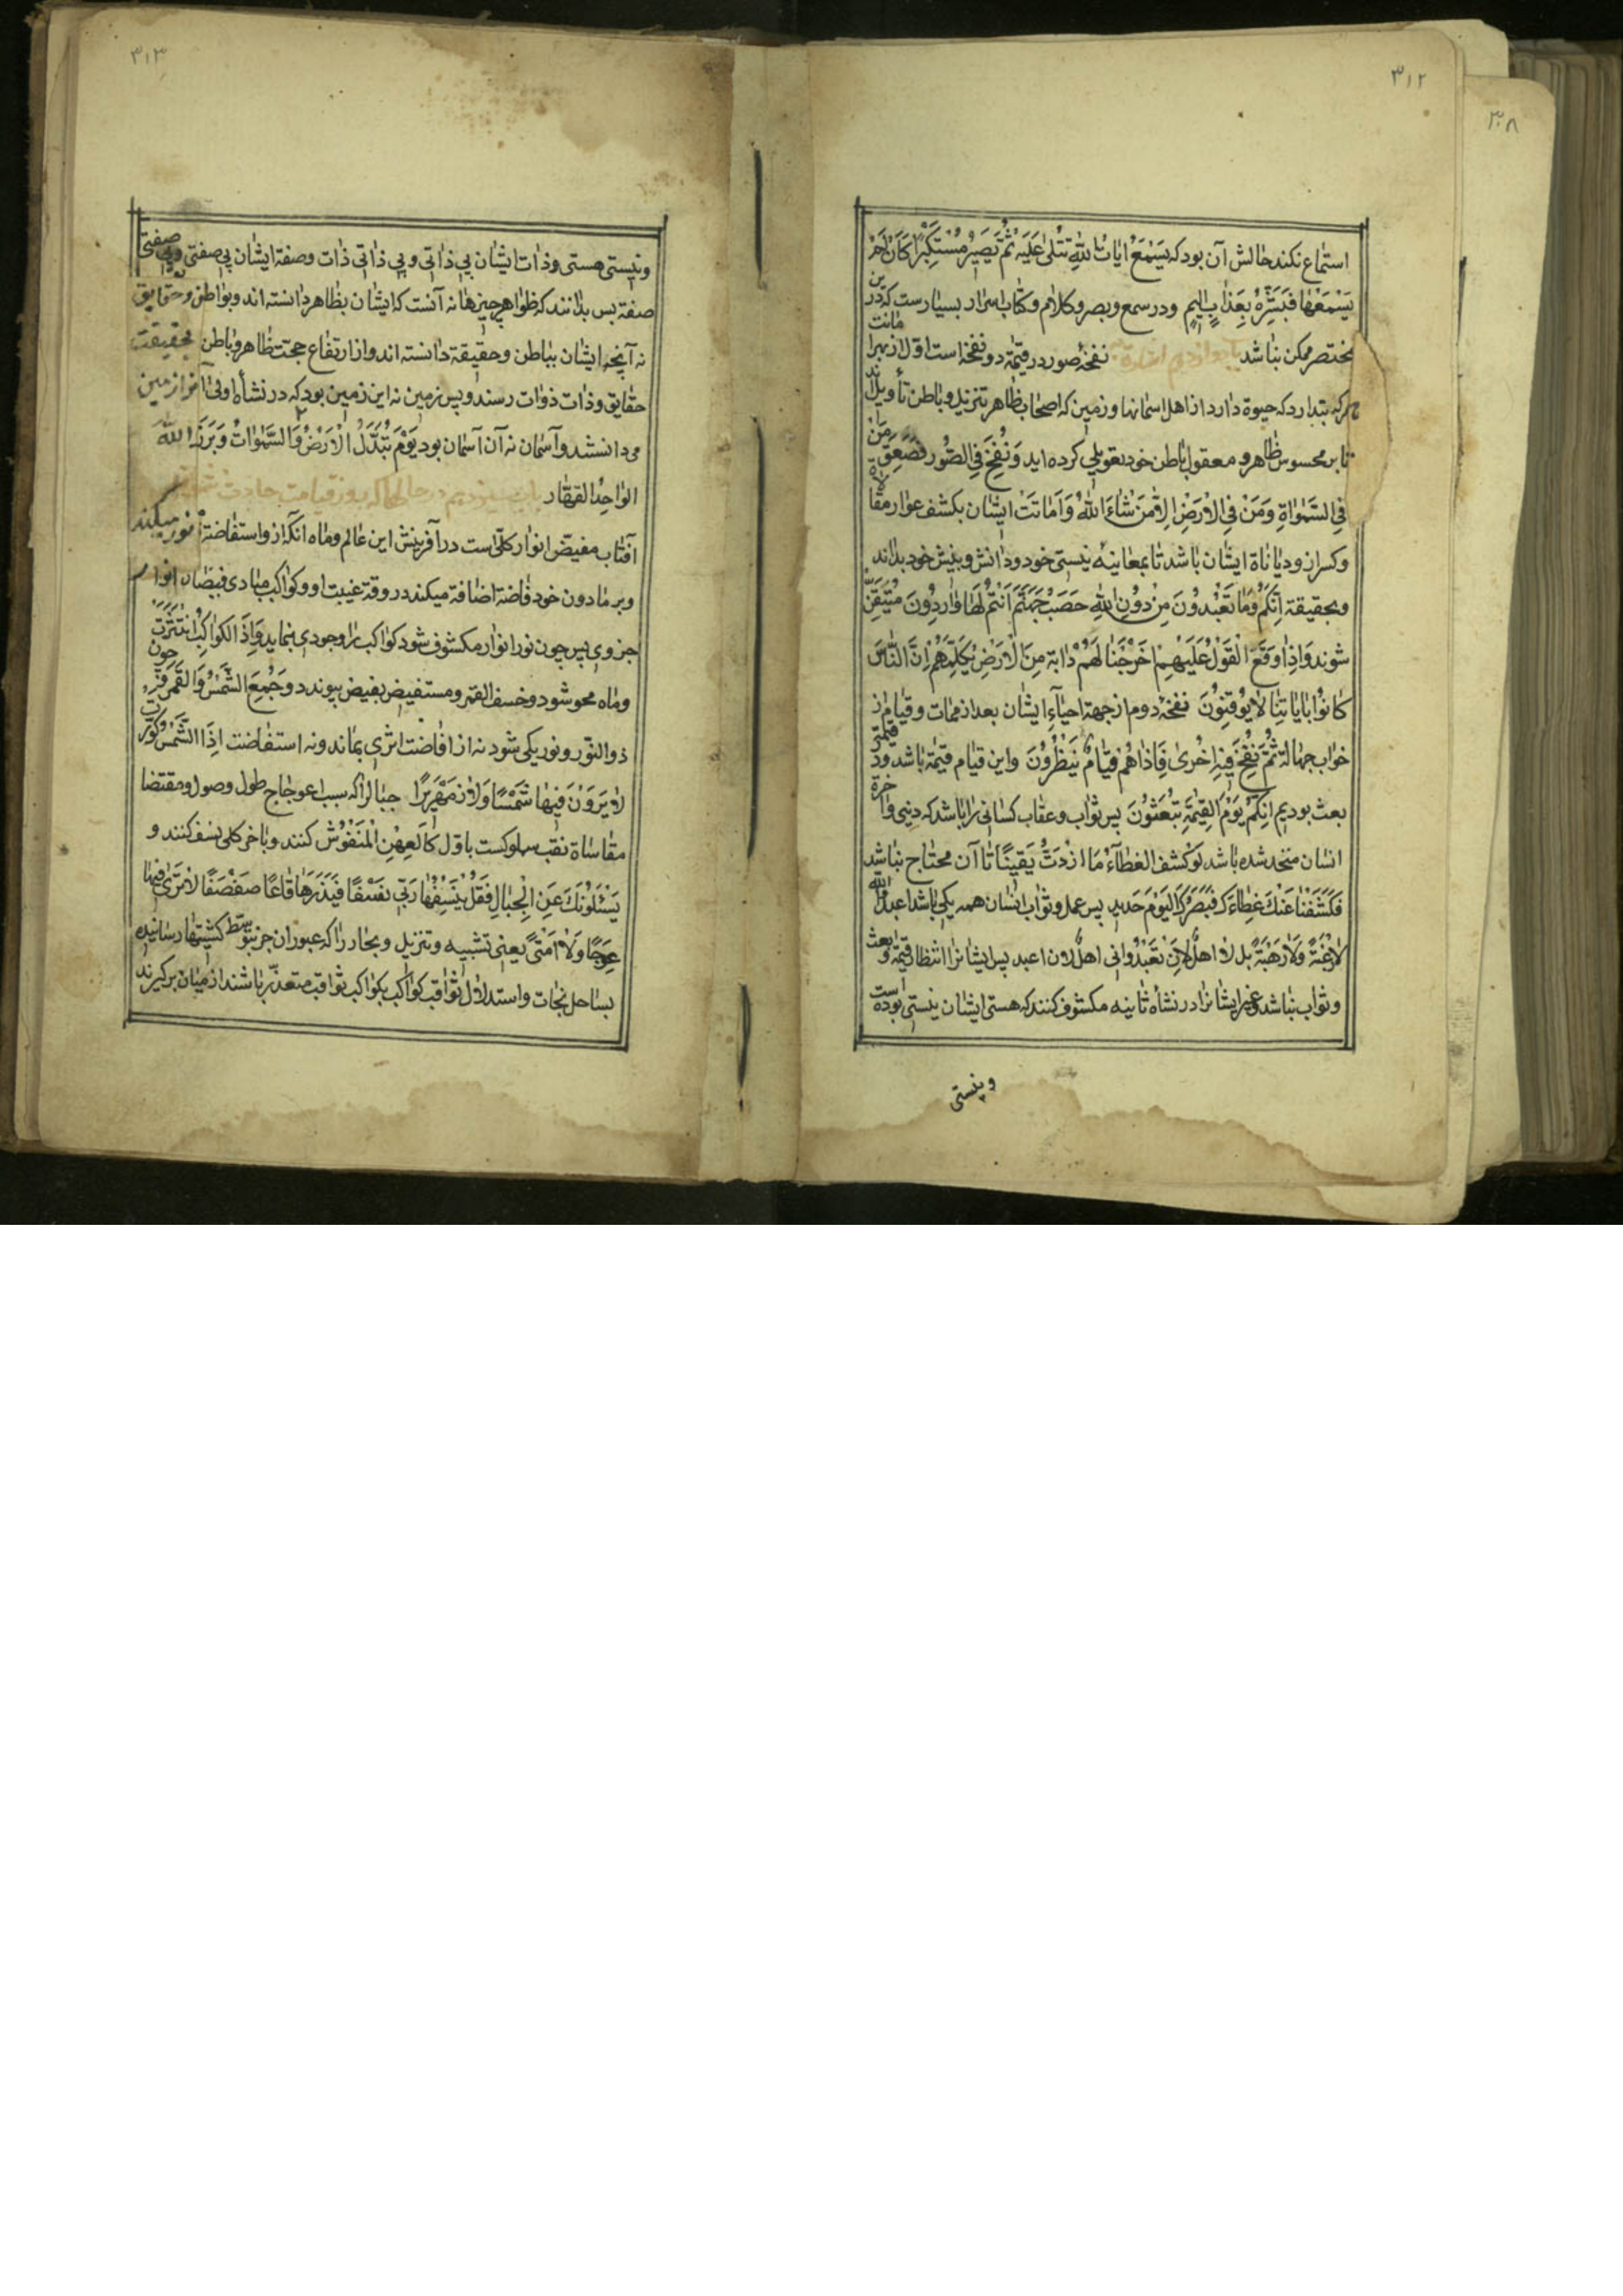 ۳۱۲
۳۰۸
استماع نکند حالش آن بود که یَسْمَعُ ایاتِ اللّهِ تُتْلیٰ عَلَیْهِ ثُمَّ یَصیِرُ مُسْتَکْبِرًا کَاَنْ لَمْ
یَسْمَعْهٰا فَبَشِّرْهُ بِعَذٰابٍ اَلیمٍ ودر سمع وبصر وکلام وکتاب اسرار بسیارست که در ین
مختصر ممکن نباشد نفخهٔ صور در قیمة دو نفخه است اول از بهر اماتت
هرکه پندارد که حیوة دارد از اهل اسمانها وزمین که اصحاب ظاهر تنزیل و باطن تأویل اند
تا بر محسوس ظاهر و معقول باطن خود تعویلی کرده اید وَنُفِخَ فِی الصُّورِ فَصَعِقَ مَنْ
فِی السَّمٰوٰاةِ وَمَنْ فِی الْاَرْضِ اِلاّٰ مَنْ شٰاءَ اللّهُ وَاَمٰاتَتْ ایشان بکشف عوار مقالاة
وکسر از ودیانٰاة ایشان باشد تا بمعاینه نیستی خود ودانش وبینش خود بدانند
وبحقیقة اِنَّکُمْ وَمٰا تَعْبُدُونَ مِنْ دُونِ اللّهِ حَصَبُ جَهَنَّمَ اَنْتُمْ لَهٰا وٰارِدُونَ مُتَیَقِّن
شوند وَاِذٰا وَقَعَ الْقَوْلُ عَلَیْهِمْ اَخْرَجْنٰا لَهُمْ دٰابَّة مِنَ الْاَرْضِ تُکَلِّمُهُمْ اِنَّ النّٰاسَ
کٰانُوا بِایٰاتِنٰا لاٰ یُوقِنُونَ نفخهٔ دوم از جهة احیآء ایشان بعد از ممات وقیام از
خواب جهالة ثُمَّ نُفِخَ فیهِ اُخْریٰ فَاِذٰا هُمْ قِیٰامٌ یَنْظُرُونَ واین قیام قیمة باشد ودر قیمتی
بعث بودیم اِنَّکُمْ یَوْمَ الْقِیٰمَةِ تُبْعَثُونَ پس ثواب وعقاب کسانی را باشد که دنیی وآخرة
انسان متحد شده باشد لَوْ کُشِفَ الْغِطٰآءُ مٰا ازْدَدْتُ یَقینًا تا آن محتاج نباشد
فَکَشَفْنٰا عَنْکَ غِطٰاءَکَ فَبَصَرُکَ الْیَوْمَ حَدید پس عمل وثواب انسان همه یکی باشد اعبد اللّه
لاٰ رَغْبَةً وَلاٰ رَهْبَةً بل لانه اهل لان تَعْبُد وانی اهل لان اعبد پس ایشانرا انتظار قیمة وبعث
وثواب نباشد وغیر ایشانرا در نشأة ثانیه مکشوف کنند که هستی ایشان نیستی بوده است
ونیستی
۳۱۳
ونیستی هستی وذات ایشان بی ذاتی وبی ذاتی ذات وصفة ایشان بی صفتی وبی صفتی
صفة پس بدانند که ظواهر چیزها نه آنست که ایشان بظاهر دانسته اند وبواطن وحقایق
نه آنچه ایشان بباطن وحقیقة دانسته اند واز ارتفاع حجت ظاهر وباطن بحقیقت
حقایق وذات ذوات رسند وپس زمین نه این زمین بود که در نشأة اولی آنرا زمین
می دانستند وآسمان نه آن آسمان بود یَوْمَ تُبَدَّلُ الْاَرْضُ وَالسَّمٰوٰاتُ وَبَرَزَ لِلّٰهِ
الواحد القهار باب سیزدهم در حالها که روز قیامت حادث شود
آفتاب مفیض انوار کلّی است در آفرینش این عالم وماه انکه ازو استفاضة نور میکند
وبر مادون خود فاضة اضافة میکند در وقة غیبت او وکواکب مبادی فیضان انوار
جزوی پس چون نور انوار مکشوف شود کواکب را وجودی بنماید وَاِذَا الکَوٰاکِبُ انْتَثَرَتْ چون
وماه محو شود وخسف القمر ومستفیض بفیض پیوندد وَجُمِعَ الشَّمْسُ وَالْقَمَرُ
ذو النّور ونور یکی شود نه از افاضت اثری بماند ونه استفاضت اِذَا الشَّمْسُ کُوِّرَتْ
لاٰ یَرَوْنَ فیهٰا شَمْسًا وَلاٰ زَمْهَریرًا جبال را که سبب اعوجاج طول وصول ومقتضا
مقاساة نقب سلوکست باول کَالْعِهْنِ الْمَنْفُوشِ کنند وباخر کلی نسف کنند و
یَسْئَلُونَکَ عَنِ الْجِبٰالِ فَقُلْ یَنْسِفُهٰا رَبّی نَسْفًا فَیَذَرُهٰا قٰاعًا صَفْصَفًا لاٰ تَریٰ فیهٰا
عِوَجًا وَلاٰ اَمْتًا یعنی تشبیه وتنزیل وبحار را که عبور ان جز بتوسّط کشتیها رسانیده
بساحل نجات واستدلال ثواقب کواکب بکواکب ثواقب متعذّر باشند از میان برگیرند